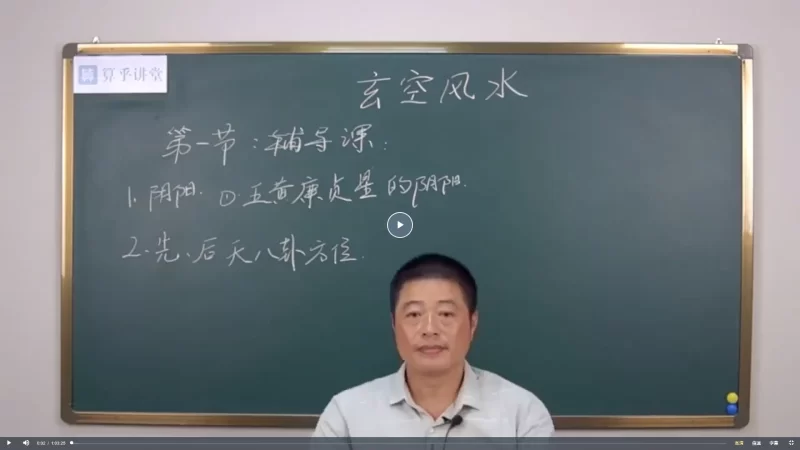 算乎讲堂
玄空风水
第一节：辅导课：
1. 阴阳. ①. 五黄廉贞星的阴阳.
2. 先、后天八卦方位.